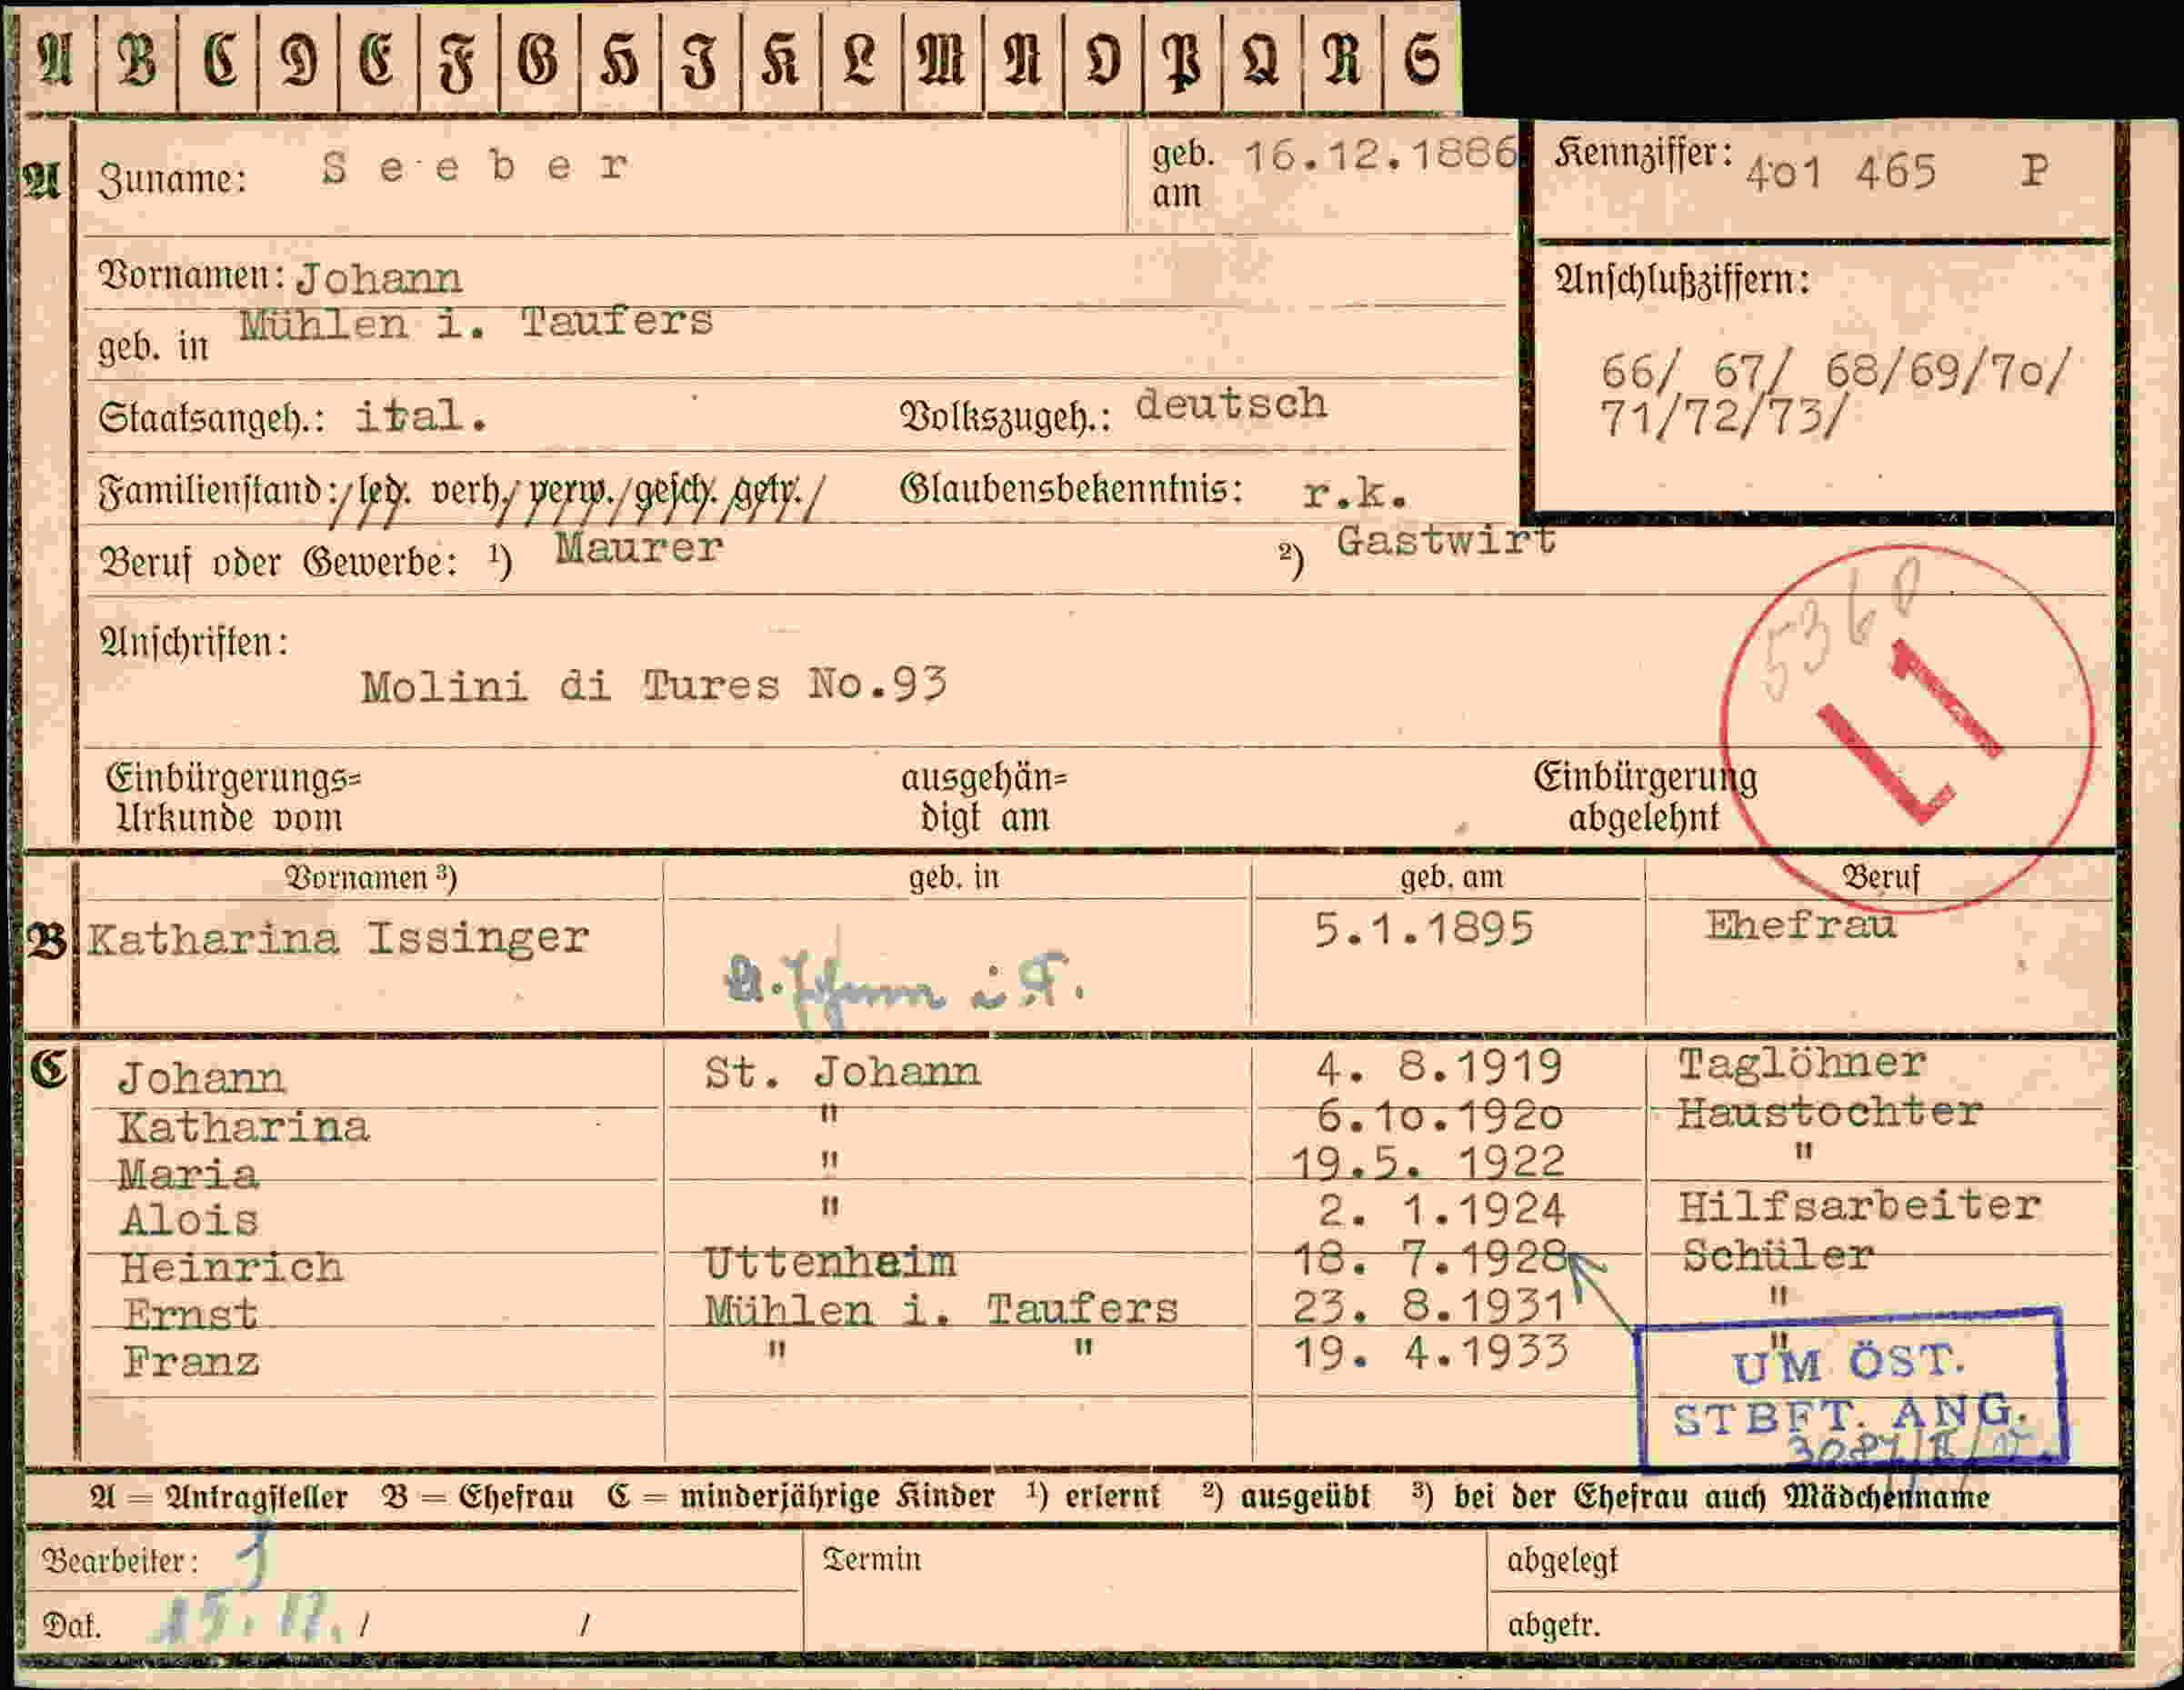 A B C D E F G H I K L M N O P Q R S
A Zuname: Seeber geb. am 16.12.1886 Kennziffer: 401 465 P
Vornamen: Johann
geb. in Mühlen i. Taufers
Anschlußziffern:
66/ 67/ 68/69/70/
71/72/73/
Staatsangeh.: ital. Volkszugeh.: deutsch
Familienstand: led. verh. verw. gesch. getr. Glaubensbekenntnis: r.k.
Beruf oder Gewerbe: ¹) Maurer ²) Gastwirt
5360
Anschriften:
Molini di Tures No.93
L1
Einbürgerungs= ausgehän= Einbürgerung
Urkunde vom digt am abgelehnt
Vornamen ³) geb. in geb. am Beruf
B Katharina Issinger 5.1.1895 Ehefrau
i. T.
C Johann St. Johann 4. 8.1919 Taglöhner
Katharina " 6.10.1920 Haustochter
Maria " 19.5. 1922 "
Alois " 2. 1.1924 Hilfsarbeiter
Heinrich Uttenheim 18. 7.1928 Schüler
Ernst Mühlen i. Taufers 23. 8.1931 "
Franz " " 19. 4.1933 "
UM ÖST.
STBFT. ANG.
A = Antragsteller B = Ehefrau C = minderjährige Kinder ¹) erlernt ²) ausgeübt ³) bei der Ehefrau auch Mädchenname
Bearbeiter: Termin abgelegt
Dat. 15. 12. / / abgetr.